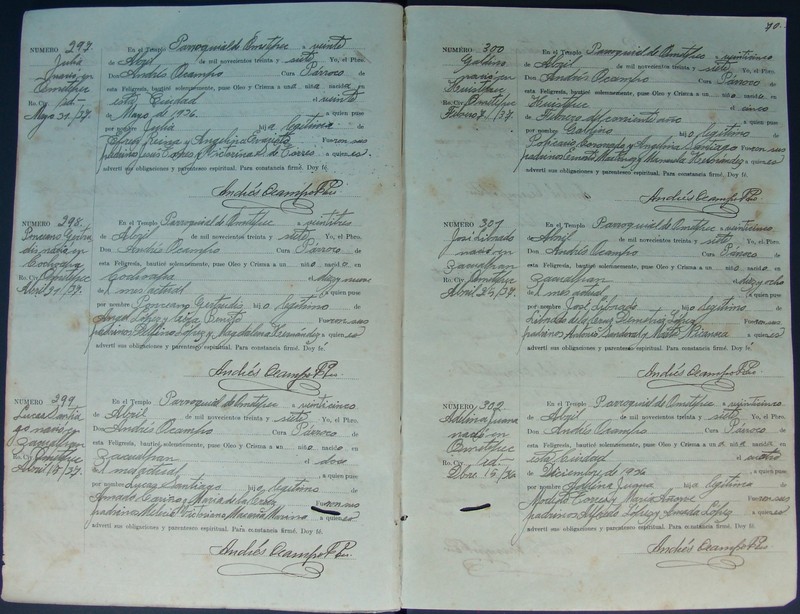 NUMERO 297.
Julia
nació en
Ometepec
Ro. Civ. id-
Mayo 31/37.
En el Templo Parroquial de Ometepec a veinte
de Abril de mil novecientos treinta y siete Yo, el Pbro.
Don Andrés Ocampo Cura Párroco de
esta Feligresía, bauticé solemnemente, puse Oleo y Crisma a una niña nacida en
esta Ciudad el veinte
de Mayo de 1936. a quien puse
por nombre Julia hija legítima
Efren Reina y Angelina Fueron sus
padrinos Luis López y Victorina S. de Torres a quienes
advertí sus obligaciones y parentesco espiritual. Para constancia firmé. Doy fé.
Andrés Ocampo
NUMERO 298.
Ponciano Gertru
dis nació en
Cochoapa
Ro. Civ. Ometepec
Abril 21/37.
En el Templo Parroquial de Ometepec a veintitres
de Abril de mil novecientos treinta y siete Yo, el Pbro.
Don Andrés Ocampo Cura Párroco de
esta Feligresía, bauticé solemnemente, puse Oleo y Crisma a un niño nacido en
Cochoapa el diez y nueve
del mes actual a quien puse
por nombre Ponciano Gertrudis hijo legítimo
Angel López y Benito Fueron sus
padrinos López y Magdalena Hernández a quienes
advertí sus obligaciones y parentesco espiritual. Para constancia firmé. Doy fé.
Andrés Ocampo
NUMERO 399.
Lucas Santia
go nació en
Zacualpan
Ro. Civ. Ometepec
Abril 15/37.
En el Templo Parroquial de Ometepec a veinticinco
de Abril de mil novecientos treinta y siete Yo, el Pbro.
Don Andrés Ocampo Cura Párroco de
esta Feligresía, bauticé solemnemente, puse Oleo y Crisma a un niño nacido en
Zacualpan el dos
del mes actual, a quien puse
por nombre Lucas Santiago hijo legítimo
Amado Cariño y María de la Cruz Fueron sus
padrinos Melecio Victoriano Macaria Marino a quienes
advertí sus obligaciones y parentesco espiritual. Para constancia firmé. Doy fé.
Andrés Ocampo
70.
NUMERO 300
Galdino
nació en
Huistepec
Ro. Civ. Ometepec
Febro 7/37.
En el Templo Parroquial de Ometepec a veinticinco
de Abril de mil novecientos treinta y siete Yo, el Pbro.
Don Andrés Ocampo Cura Párroco de
esta Feligresía, bauticé solemnemente, puse Oleo y Crisma a un niño nacido en
Huistepec el cinco
de Febrero del corriente año a quien puse
por nombre Galdino hijo legítimo
Coronado y Angelina Santiago Fueron sus
padrinos Martínez y Hernández a quienes
advertí sus obligaciones y parentesco espiritual. Para constancia firmé. Doy fé.
Andrés Ocampo
NUMERO 301
José Librado
nació en
Zacualpan
Ro. Civ. Ometepec
Abril 24/37.
En el Templo Parroquial de Ometepec a veinticinco
de Abril de mil novecientos treinta y siete Yo, el Pbro.
Don Andrés Ocampo Cura Párroco de
esta Feligresía, bauticé solemnemente, puse Oleo y Crisma a un niño nacido en
Zacualpan el diez y ocho
del mes actual a quien puse
por nombre José Librado hijo legítimo
de la Cruz Demetria López Fueron sus
padrinos Antonio Sandoval y Marta a quienes
advertí sus obligaciones y parentesco espiritual. Para constancia firmé. Doy fé.
Andrés Ocampo
NUMERO 302.
Adelina Juana
nació en
Ometepec
Ro. Civ. id-
Dbre. 15/36
En el Templo Parroquial de Ometepec a veinticinco
de Abril de mil novecientos treinta y siete Yo, el Pbro.
Don Andrés Ocampo Cura Párroco de
esta Feligresía, bauticé solemnemente, puse Oleo y Crisma a una niña nacida en
esta Ciudad el cuatro
de Diciembre de 1936 a quien puse
por nombre Adelina Juana hija legítima
Modesto Torres y María Fueron sus
padrinos Alfredo López y López a quienes
advertí sus obligaciones y parentesco espiritual. Para constancia firmé. Doy fé.
Andrés Ocampo